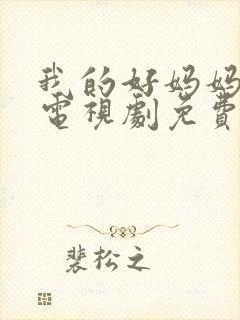 我的好妈妈
電視劇免費
裴松之